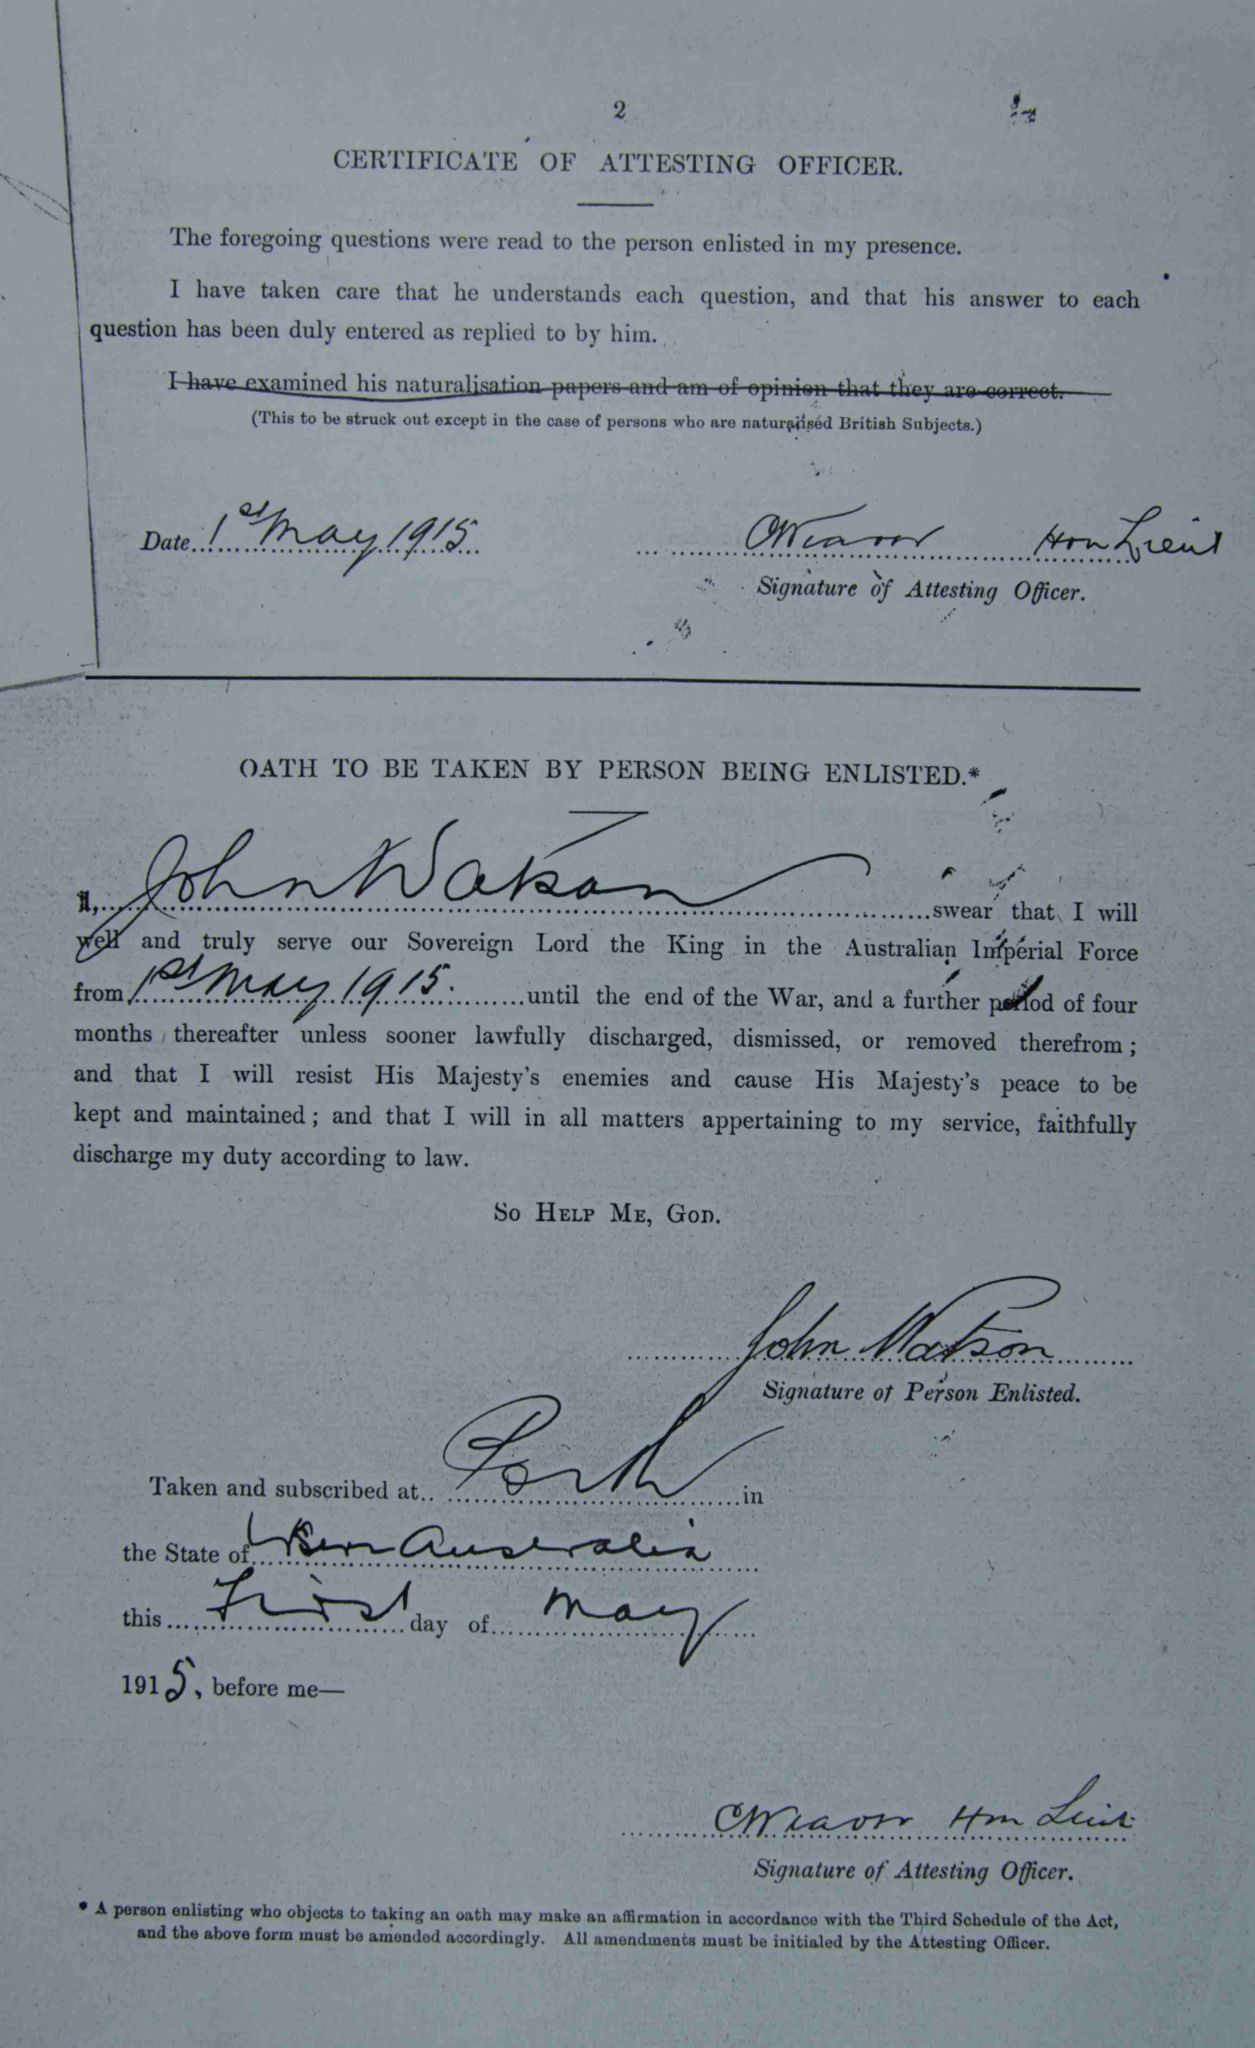 2
CERTIFICATE OF ATTESTING OFFICER.
The foregoing questions were read to the person enlisted in my presence.
I have taken care that he understands each question, and that his answer to each
question has been duly entered as replied to by him.
I have examined his naturalisation papers and am of opinion that they are correct.
(This to be struck out except in the case of persons who are naturalised British Subjects.)
Date 1st May 1915 CWeaver Hon Lieut
Signature of Attesting Officer.
OATH TO BE TAKEN BY PERSON BEING ENLISTED.*
I, John Watson swear that I will
well and truly serve our Sovereign Lord the King in the Australian Imperial Force
from 1st May 1915. until the end of the War, and a further period of four
months thereafter unless sooner lawfully discharged, dismissed, or removed therefrom;
and that I will resist His Majesty's enemies and cause His Majesty's peace to be
kept and maintained; and that I will in all matters appertaining to my service, faithfully
discharge my duty according to law.
SO HELP ME, GOD.
John Watson
Signature of Person Enlisted.
Taken and subscribed at Perth in
the State of Western Australia
this First day of May
1915, before me—
CWeaver Hon Lieut
Signature of Attesting Officer.
* A person enlisting who objects to taking an oath may make an affirmation in accordance with the Third Schedule of the Act,
and the above form must be amended accordingly. All amendments must be initialed by the Attesting Officer.